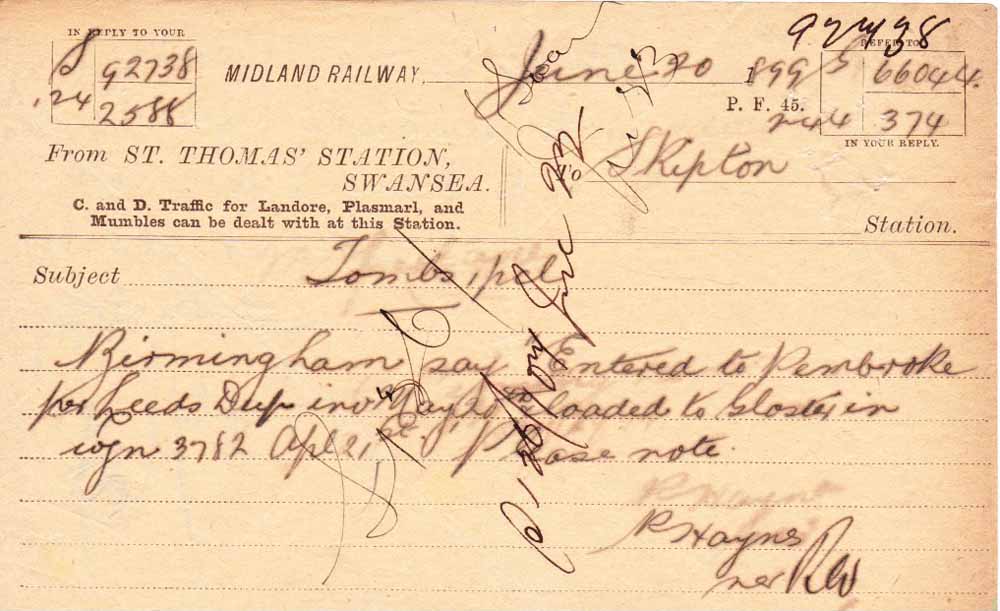 IN REPLY TO YOUR
S 92738
124 2588
MIDLAND RAILWAY, June 20 1899
P. F. 45.
92738
REFER TO
S 66044.
244 374
IN YOUR REPLY.
From ST. THOMAS' STATION,
SWANSEA.
C. and D. Traffic for Landore, Plasmarl, and
Mumbles can be dealt with at this Station.
To Skipton
Station.
Subject Tombs, pcl
Birmingham say "Entered to Pembroke
per Leeds Dup inv May 20th loaded to Gloster in
wgn 3782 Apl 21st." Please note.
R Hayns
per RW